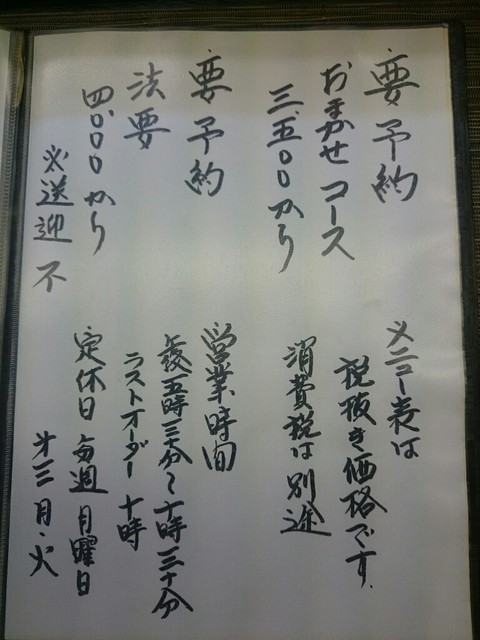 要予約
おまかせコース
三、五〇〇から
要予約
法要
四、〇〇〇から
※送迎不
メニュー表は
税抜き価格です.
消費税は別途
営業時間
午後五時三十分〜十時三十分
ラストオーダー十時
定休日 毎週月曜日
第三月・火